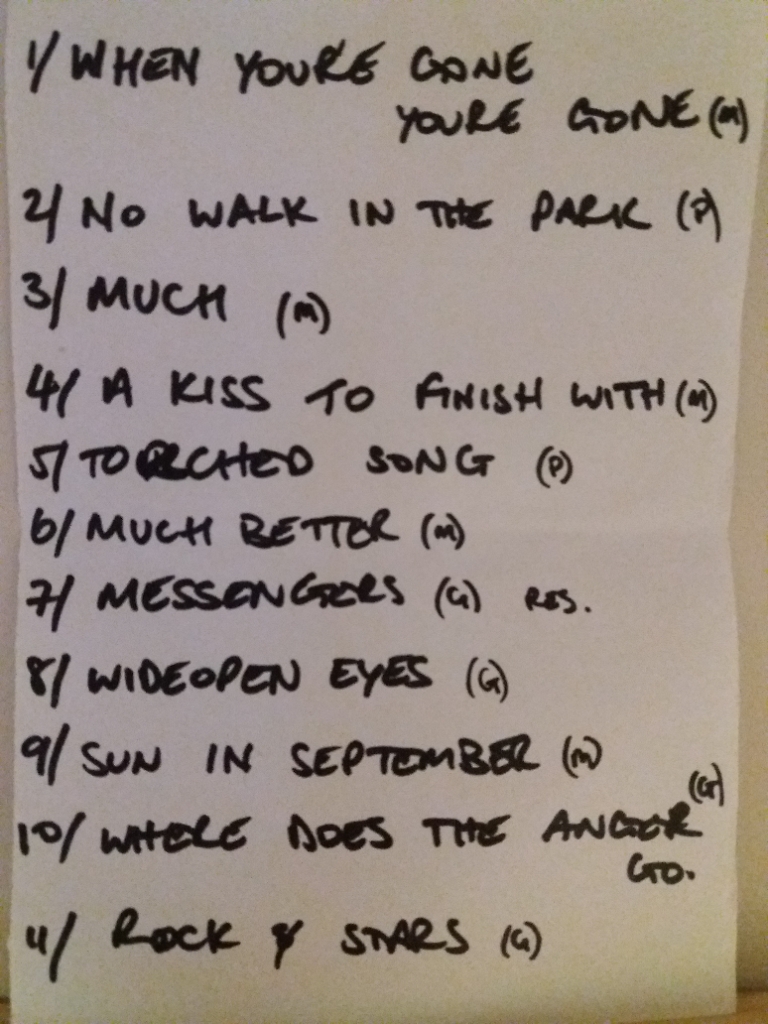 1/ WHEN YOU'RE GONE
YOURE GONE (M)
2/ NO WALK IN THE PARK (P)
3/ MUCH (M)
4/ A KISS TO FINISH WITH (M)
5/ TORCHED SONG (P)
6/ MUCH BETTER (M)
7/ MESSENGERS (G) RES.
8/ WIDEOPEN EYES (G)
9/ SUN IN SEPTEMBER (M)
10/ WHERE DOES THE ANGER (G)
GO.
11/ ROCK & STARS (G)